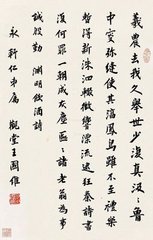 羲農去我久舉世少復真汲〻魯
中叟彌縫使其淳鳳鳥雖不至禮樂
暫得新洙泗輟微響漂流逮狂秦詩書
復何罪一朝成灰塵區〻諸老翁為事
誠殷勤 淵明飲酒詩
永軒仁弟屬 觀堂王國維